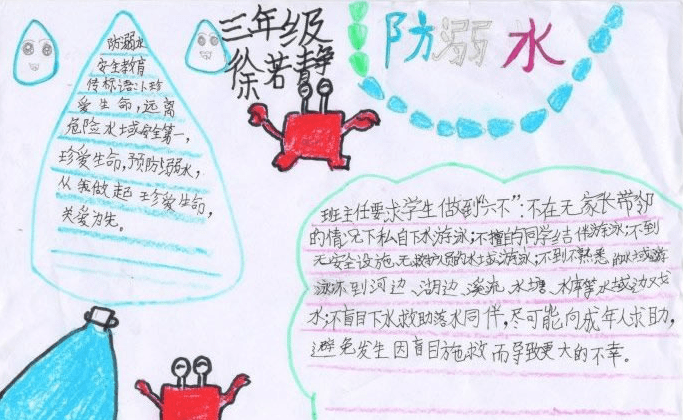 三年级
徐若静
防溺水
防溺水
安全教育
传标语:1、珍
爱生命,远离
危险水域安全第一,
珍爱生命,预防溺水,
从我做起 珍爱生命,
关爱为先。
班主任要求学生做到“六不”:不在无家长带领
的情况下私自下水游泳;不擅自与同学结伴游泳;不到
无安全设施、无救护员的水域游泳;不到不熟悉的水域游
泳不到河边、湖边、溪流、水塘、水库等水域边戏
水;不盲目下水救助落水同伴,尽可能向成年人求助,
避免发生因盲目施救而导致更大的不幸。